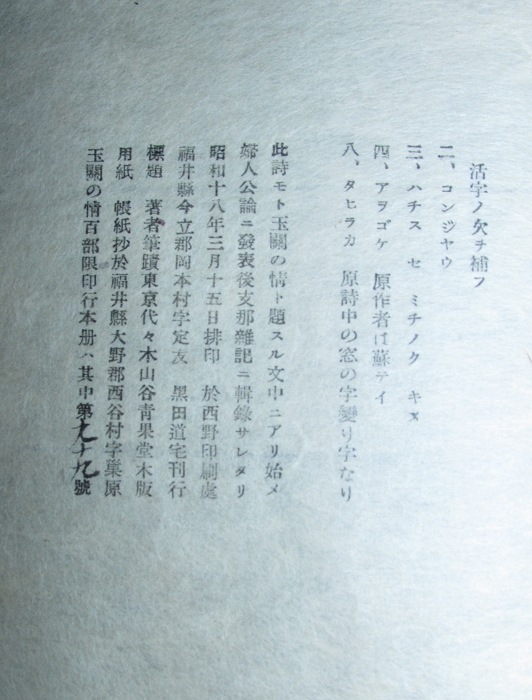 活字ノ欠ヲ補フ
二、コンジヤウ
三、ハチス セ ミチノク キヌ
四、アヲゴケ 原作者は蘇テイ
八、タヒラカ 原詩中の窓の字變り字なり
此詩モト玉關の情ト題スル文中ニアリ始メ
婦人公論ニ發表後支那雜記ニ輯錄サレタリ
昭和十八年三月十五日排印 於西野印刷處
福井縣今立郡岡本村字定友 黒田道宅刊行
標題 著者筆蹟東京代々木山谷靑果堂木版
用紙 帳紙抄於福井縣大野郡西谷村字巢原
玉關の情百部限印行本册ハ其中第九十九號